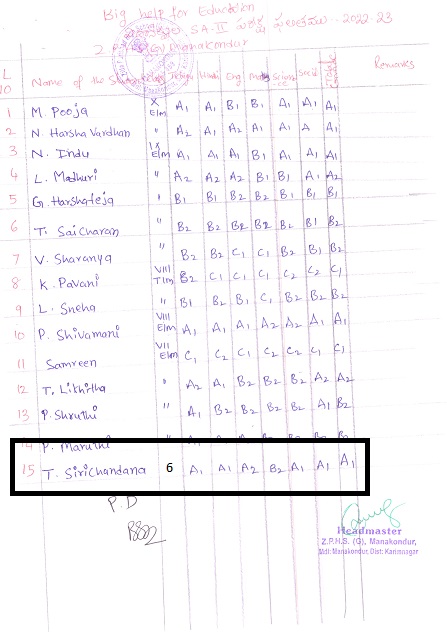 Big help for Education
SA-II పరీక్ష ఫలితములు - 2022-23
Z.P.H.S (G) Manakondur
Name of the Student Class Telugu Hindi Eng Maths Science Social Grade Remarks
1 M. Pooja X E/m A1 A1 B1 B1 A1 A1 A1
2 N. Harsha Vardhan " A2 A1 A2 A1 A1 A A1
3 N. Indu IX E/m A1 A1 A1 B1 A1 A1 A1
4 L. Madhuri " A2 A2 A2 B1 B1 A1 A2
5 G. Harshateja " B1 B1 B2 B2 B1 B1 B1
6 T. Saicharan " B2 B2 B2 B2 B2 B1 B2
7 V. Sharanya " B2 B2 C1 C1 B2 B2 B2
8 K. Pavani VIII T/m B2 C1 C1 C1 C2 C2 C1
9 L. Sneha " B1 B2 B1 C1 B2 B2 B2
10 P. Shivamani VIII E/m A1 A1 A1 A2 A2 A1 A1
11 Samreen VII E/m C1 C2 C1 C2 C2 C1 C1
12 T. Likhitha " A2 A1 B2 B2 B2 A2 A2
13 P. Shruthi " A1 B2 B2 B2 B2 A1 B2
14 P. Maruthi
15 T. Sirichandana 6 A1 A1 A2 B2 A1 A1 A1
P.D
Headmaster
Z.P.H.S. (G), Manakondur,
Mdl: Manakondur, Dist: Karimnagar